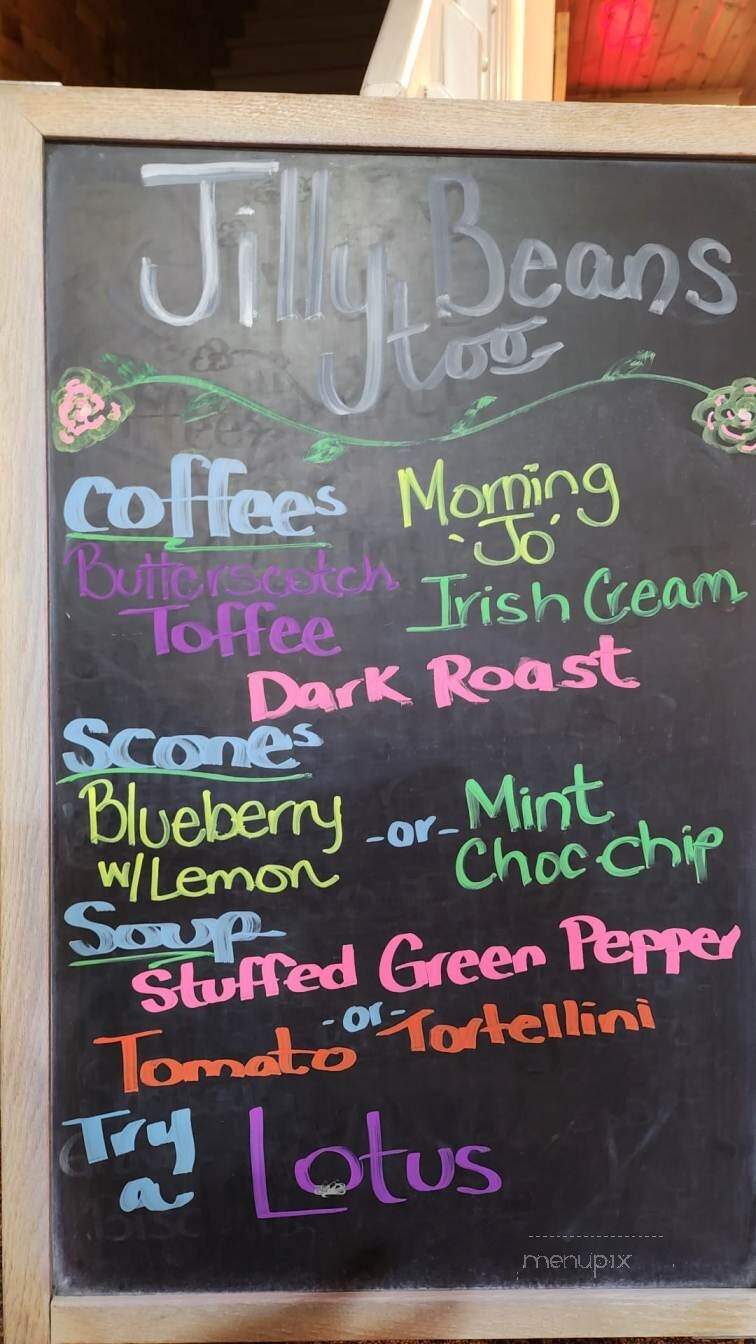 Jilly Beans
too
Coffees
Morning
'Jo'
Butterscotch
Toffee
Irish Cream
Dark Roast
Scones
Blueberry
w/Lemon
-or-
Mint
Choc Chip
Soup
Stuffed Green Pepper
-or-
Tomato Tortellini
Try
a
Lotus
menupix